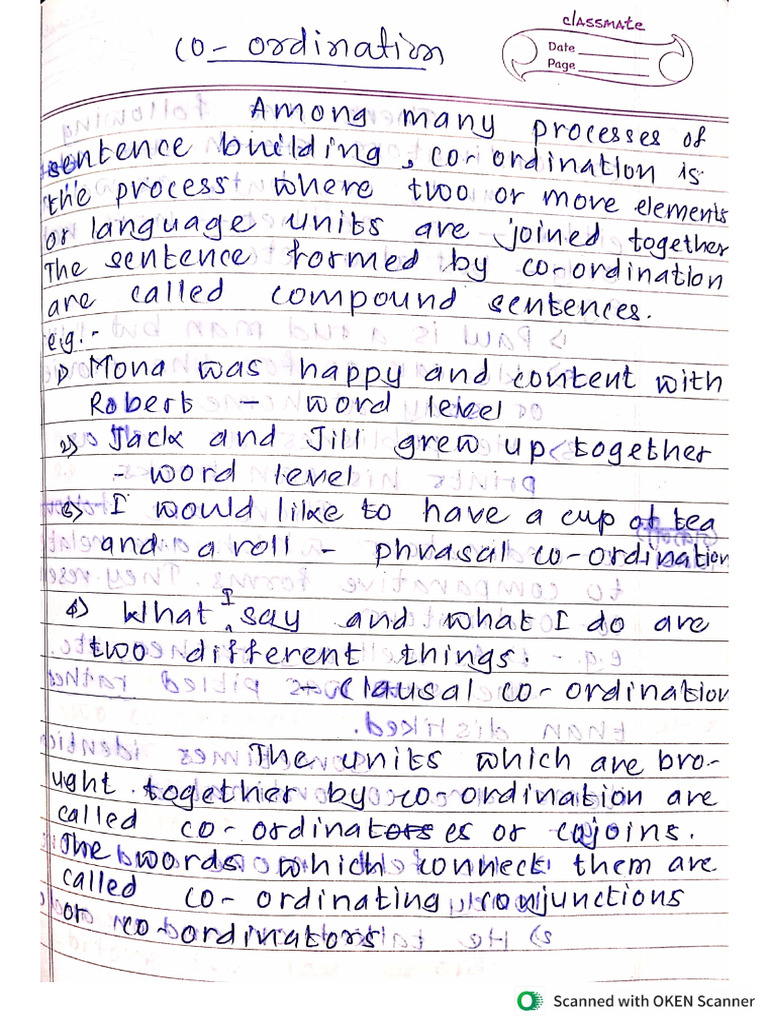 co-ordination
classmate
Date
Page
Among many processes of
sentence building, co-ordination is
the process where two or more elements
or language units are joined together
The sentence formed by co-ordination
are called compound sentences.
e.g.-
1) Mona was happy and content with
Robert - word level
2) Jack and Jill grew up together
- word level
3) I would like to have a cup of tea
and a roll - phrasal co-ordination
4) What I say and what I do are
two different things. -
- clausal co-ordination
The units which are bro-
ught together by co-ordination are
called co-ordinators es or cojoins.
The words which connect them are
called co-ordinating conjunctions
or co-ordinators
Scanned with OKEN Scanner